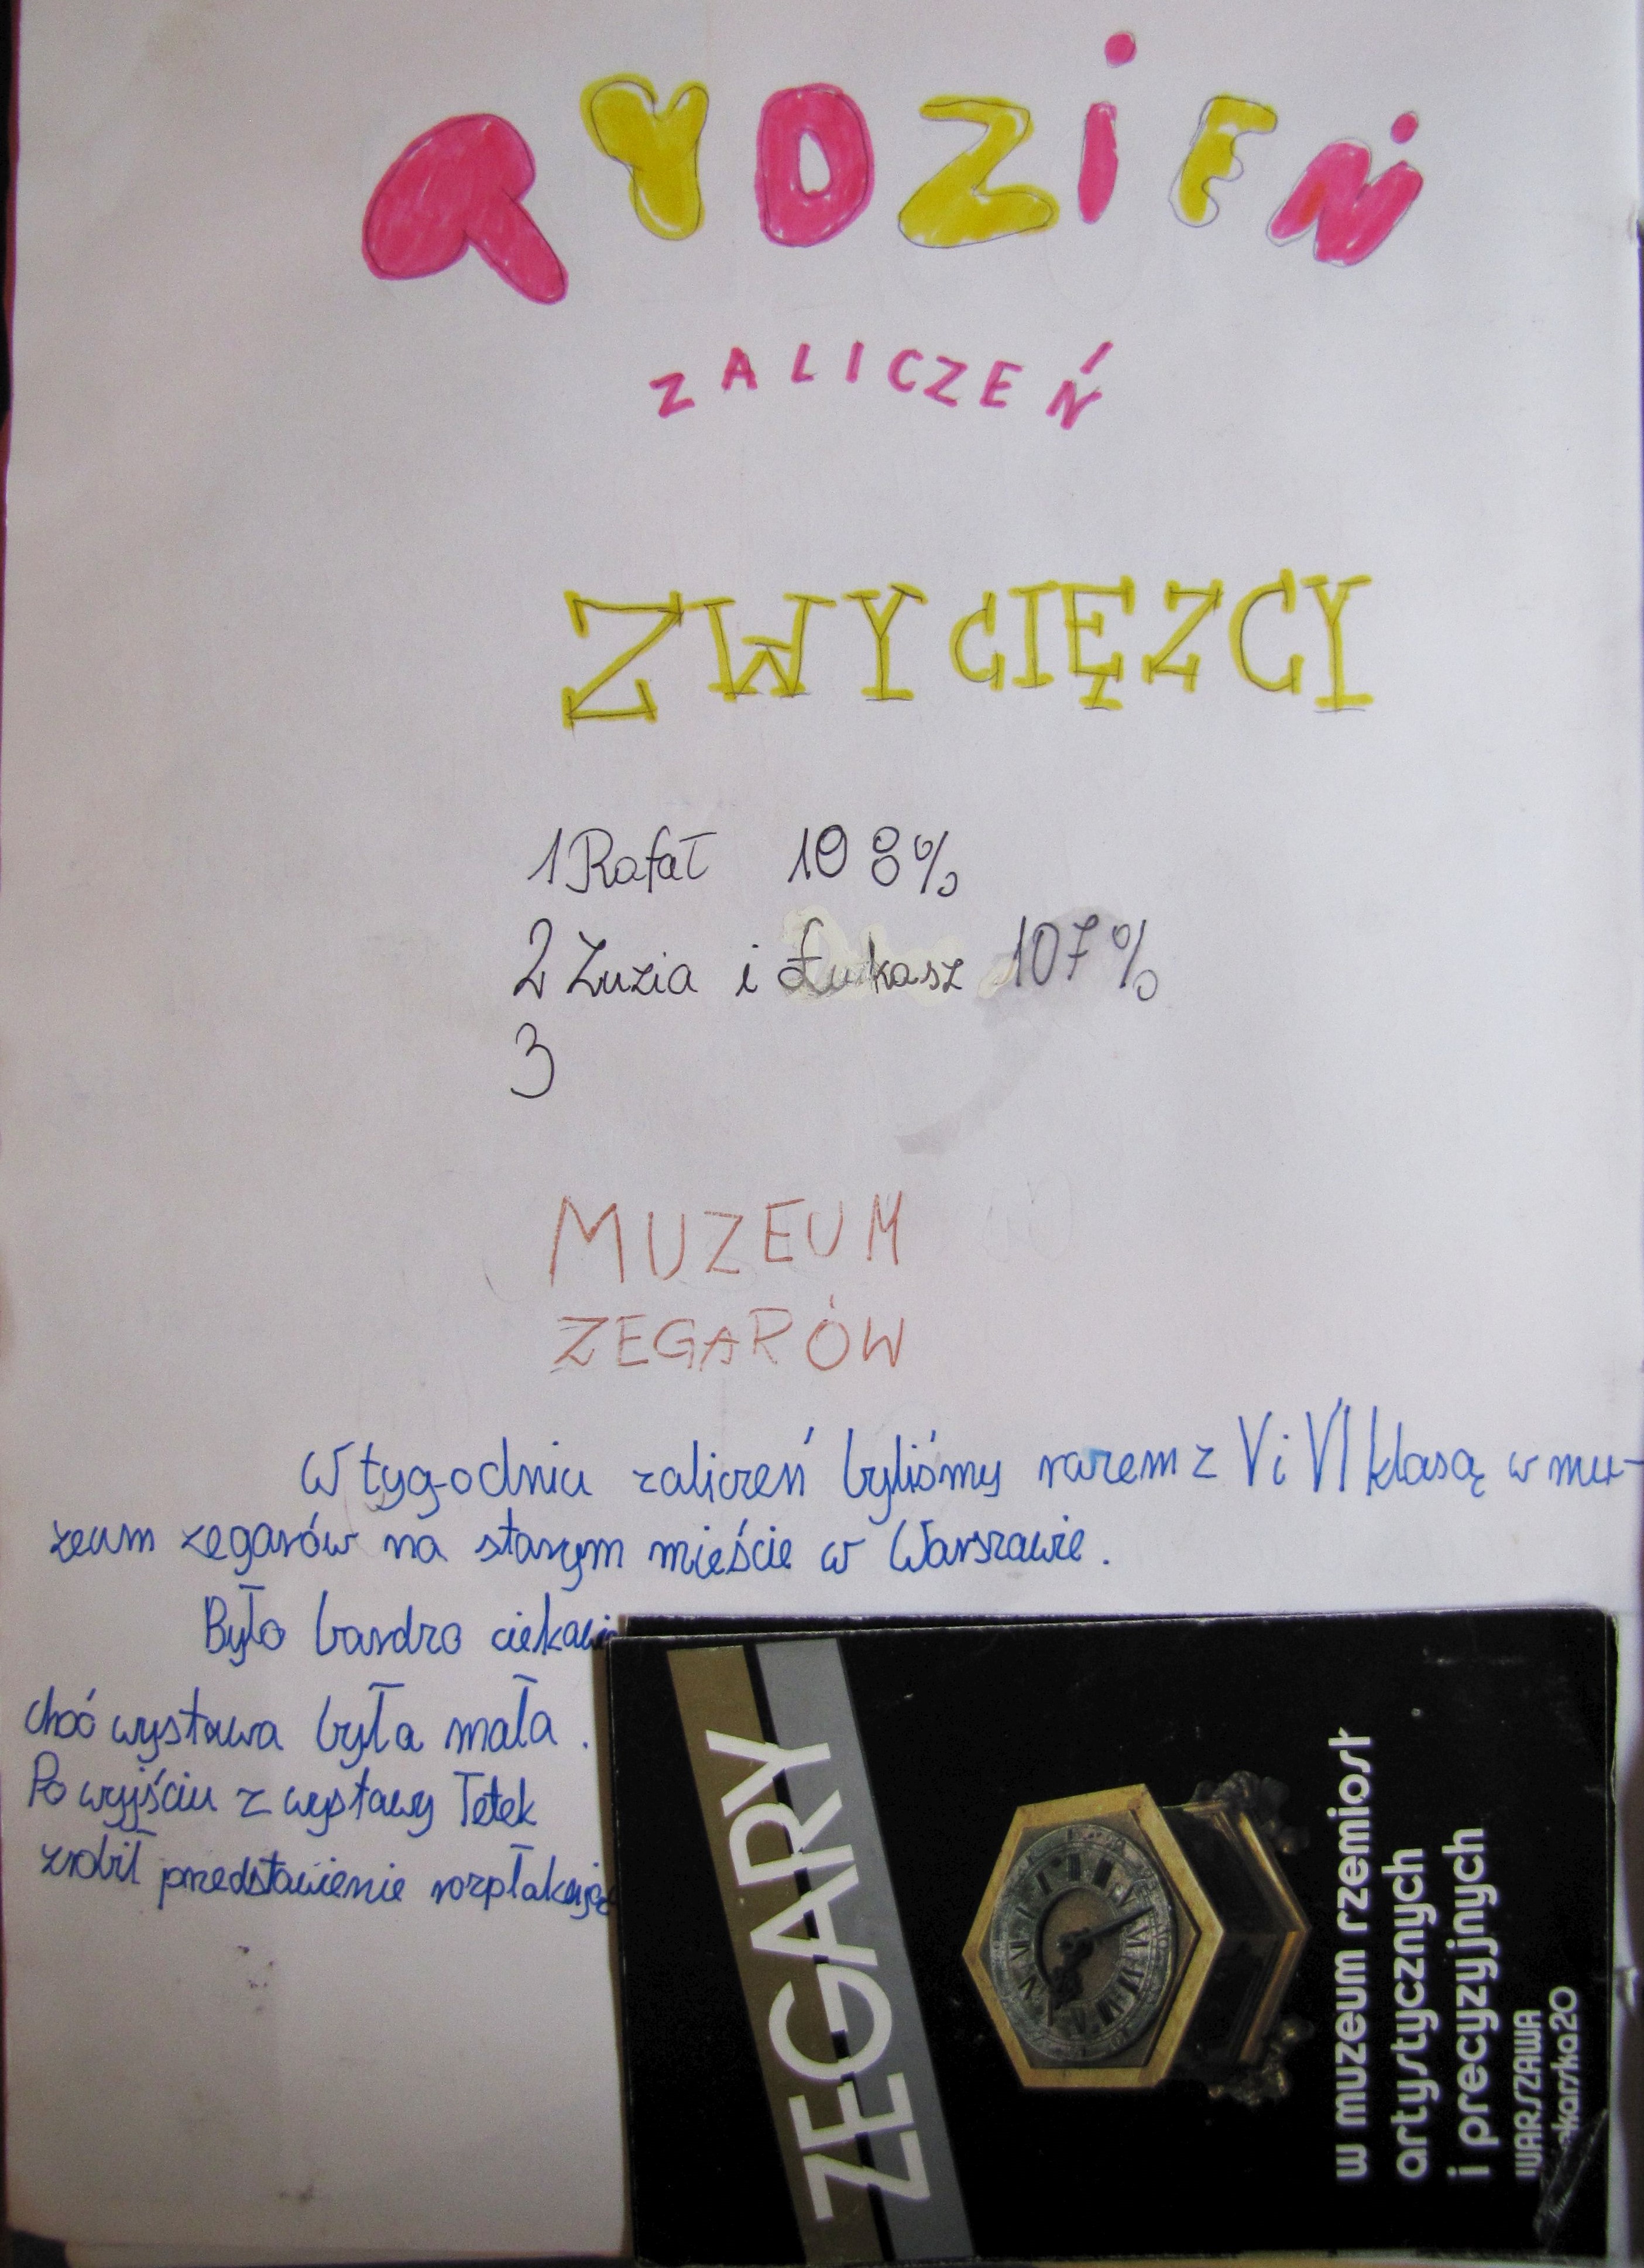 TYDZIEŃ
ZALICZEŃ
ZWYCIĘZCY
1 Rafał 108%
2 Zuzia i Łukasz 107%
3
MUZEUM
ZEGARÓW
W tygodniu zaliczeń byliśmy razem z V i VI klasą w mu-
zeum zegarów na starym mieście w Warszawie.
Było bardzo ciekawie
choć wystawa była mała.
Po wyjściu z wystawy Tetek
zrobił przedstawienie
ZEGARY
w muzeum rzemiosł
artystycznych
i precyzyjnych
WARSZAWA